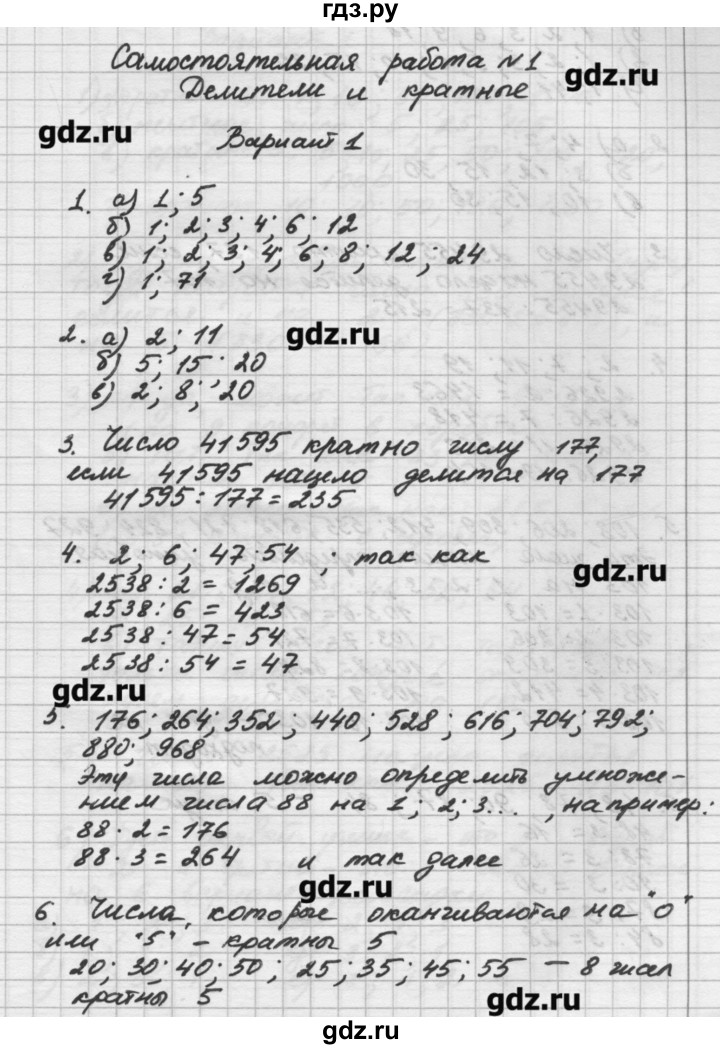 гдз.ру
Самостоятельная работа №1
gdz.ru
Делители и кратные
gdz.ru
Вариант 1
1. а) 1; 5
б) 1; 2; 3; 4; 6; 12
в) 1; 2; 3; 4; 6; 8; 12; 24
г) 1; 71
2. а) 2; 11
gdz.ru
б) 5; 15; 20
в) 2; 8; 20
3. Число 41595 кратно числу 177,
если 41595 нацело делится на 177
41595 : 177 = 235
4. 2; 6; 47; 54 ; так как
2538 : 2 = 1269
gdz.ru
2538 : 6 = 423
2538 : 47 = 54
2538 : 54 = 47
gdz.ru
5. 176; 264; 352; 440; 528; 616; 704; 792;
880; 968
Эту числа можно определить умноже-
нием числа 88 на 1; 2; 3... , например:
88 · 2 = 176
88 · 3 = 264 и так далее
gdz.ru
6. Числа, которые оканчиваются на "0"
или "5" - кратны 5
20; 30; 40; 50; 25; 35; 45; 55 — 8 чисел
кратны 5
gdz.ru
gdz.ru